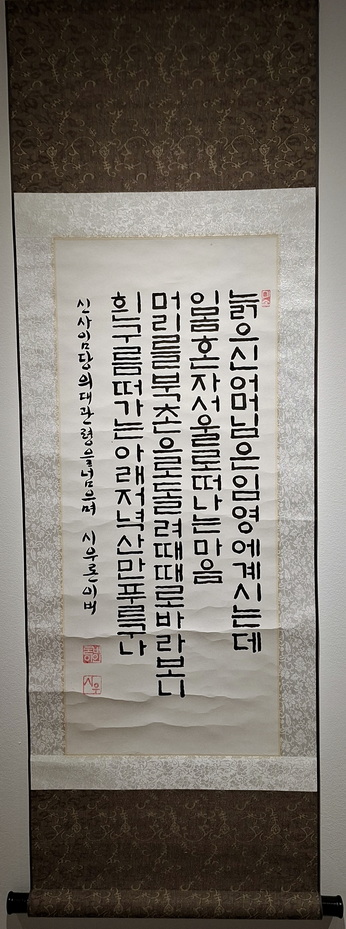 늙으신어머님은임영에계시는데
이몸혼자서울로떠나는마음
머리를북촌으로돌려때때로바라보니
흰구름떠가는아래저녁산만푸르구나
신사임당의대관령을넘으며 시우
시우